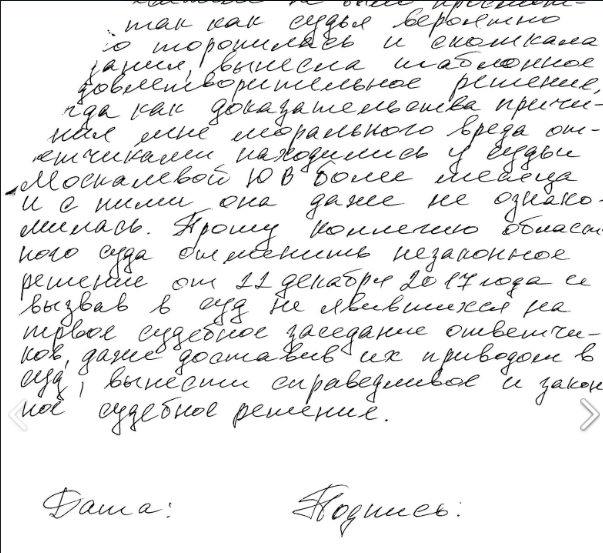 так как судья вероятно
торопилась и скомкала
вынесла шаблонное
довлетворительное решение,
гда как доказательства причи-
ния мне морального вреда от-
етчиками находились у судьи
Москалевой Ю В более месяца
и с ними она даже не ознако-
милась. Прошу коллегию област-
ного суда отменить незаконное
решение от 11 декабря 2017 года и
вызвав в суд не явившихся на
первое судебное заседание ответчи-
ков, даже доставив их приводом в
суд, вынести справедливое и закон
ное судебное решение.
Дата: Подпись: